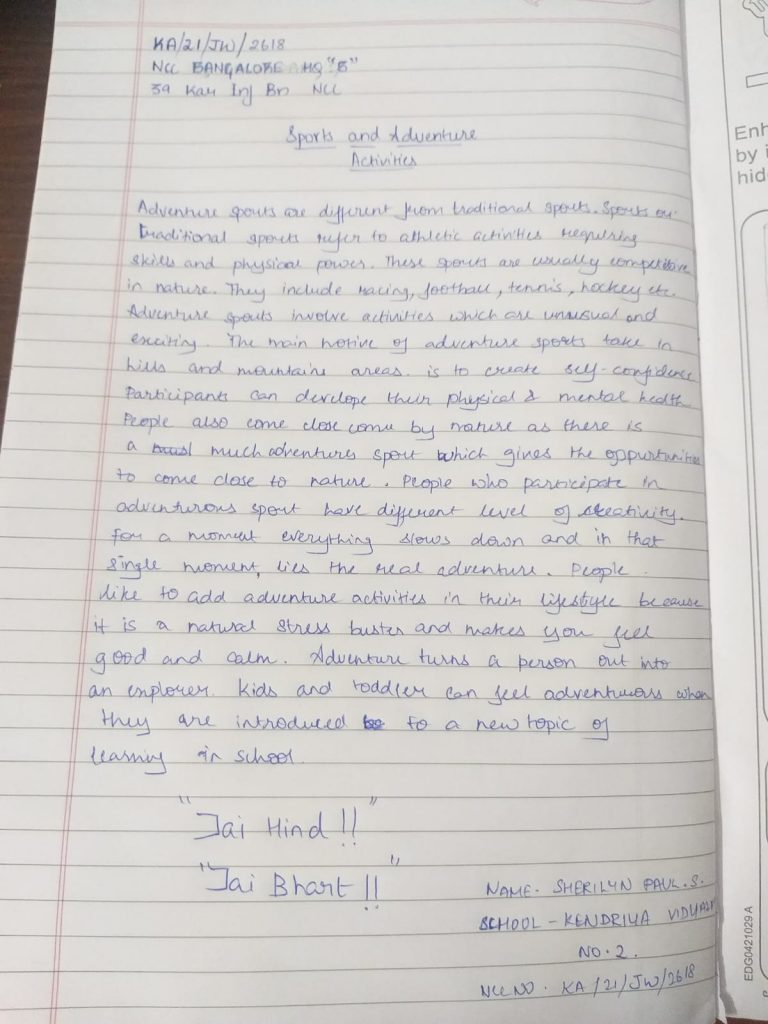 KA/21/JW/2618
NCC BANGALORE HQ "B"
39 Kar Inf Bn NCC
Sports and Adventure
Activities
Adventure sports are different from traditional sports. Sports or
traditional sports refer to athletic activities requiring
skills and physical power. These sports are usually competitive
in nature. They include racing, football, tennis, hockey etc.
Adventure sports involve activities which are unusual and
exciting. The main motive of adventure sports take in
hills and mountains areas. is to create self-confidence
Participants can develope their physical & mental health.
People also come close come by nature as there is
a much adventures sport which gives the oppurtunities
to come close to nature. People who participate in
adventurous sport have different level of creativity.
for a moment everything slows down and in that
single moment, lies the real adventure. People
like to add adventure activities in their lifestyle because
it is a natural stress buster and makes you feel
good and calm. Adventure turns a person out into
an explorer. Kids and toddler can feel adventurous when
they are introduced to a new topic of
learning in school.
"Jai Hind !!"
"Jai Bhart !!"
NAME - SHERILYN PAUL.S.
SCHOOL - KENDRIYA VIDYALY
NO.2.
NCC NO. KA/21/JW/2618
Enh
by i
hid
EDG0421029 A